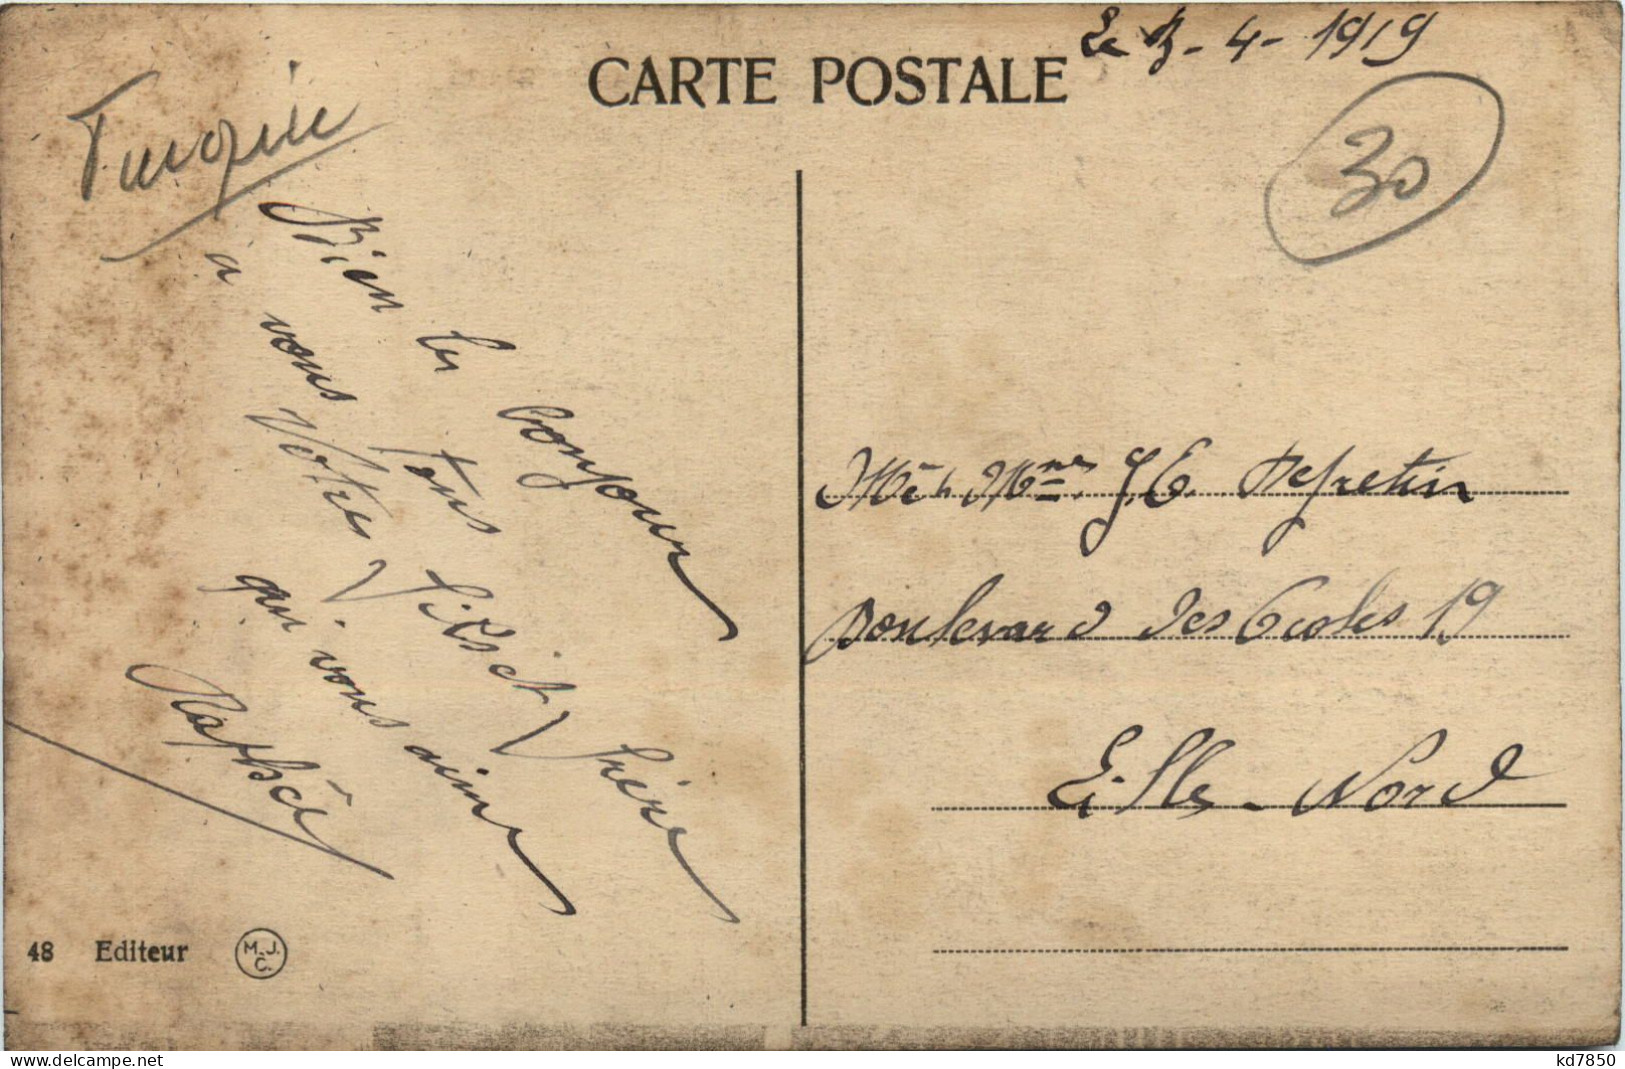 CARTE POSTALE
Le 3-4-1919
Turquie
30
Bien le bonjour
à vous tous
Votre fils et frère
qui vous aime
Raphaël
Mr & Mmes J.E. Depretin
Boulevard des Ecoles 19
Lille - Nord
48 Editeur M.J.C.
www.delcampe.net
kd7850